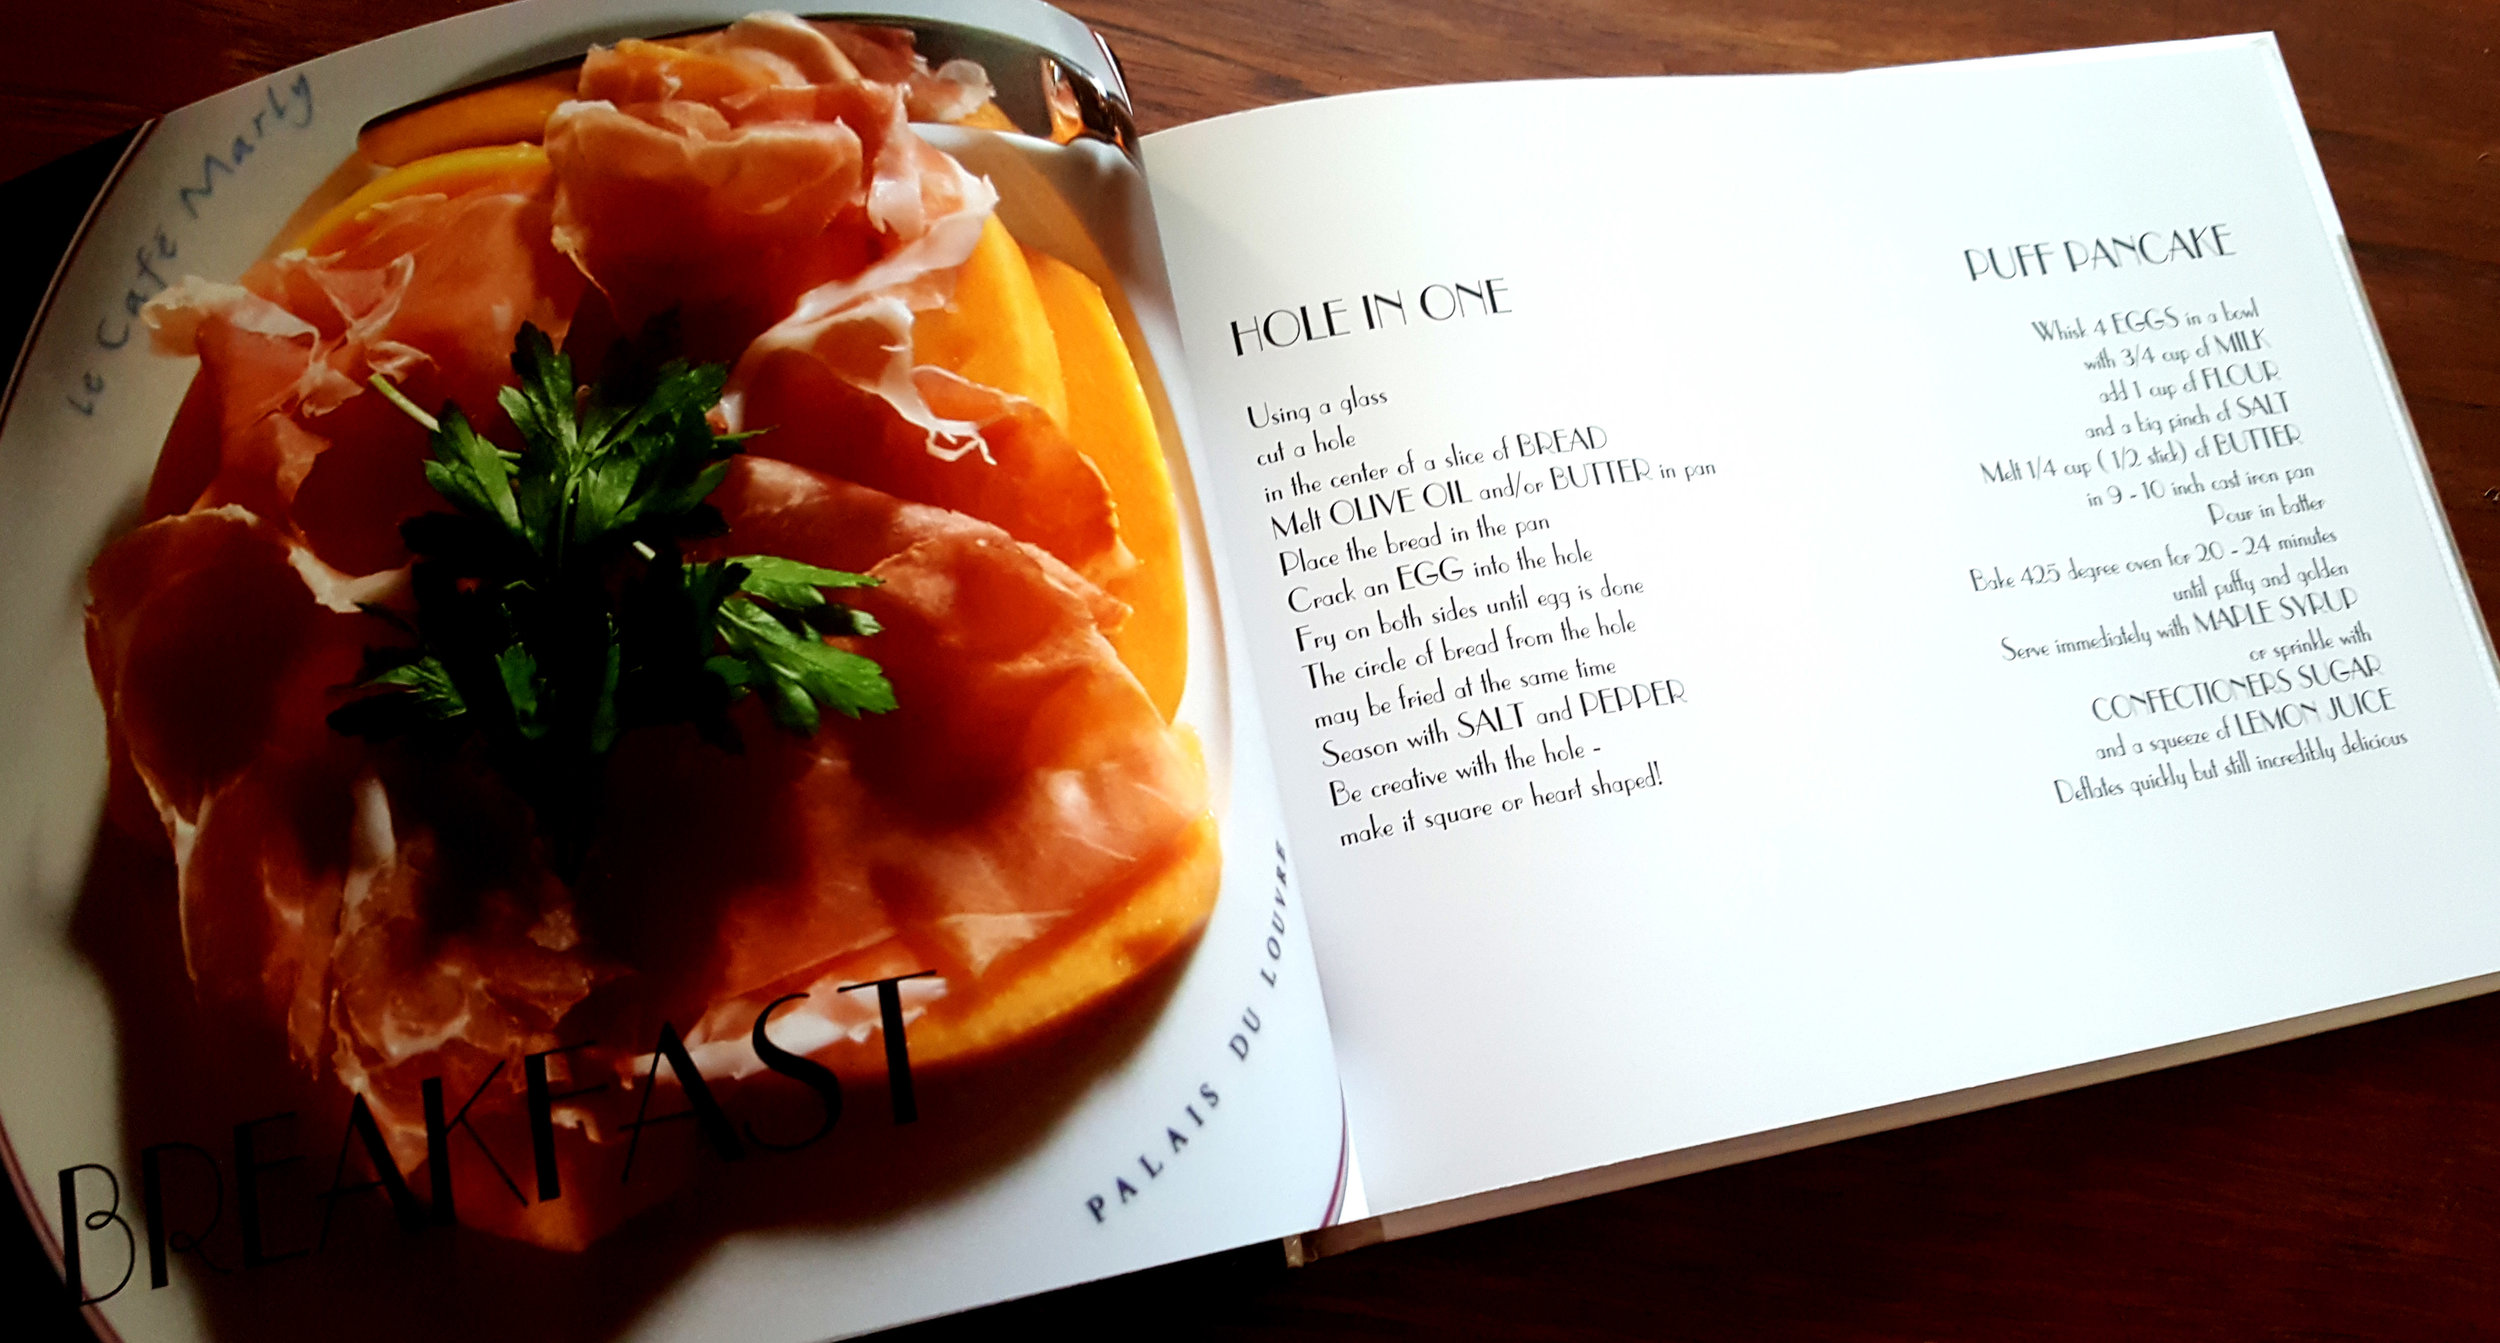 Le Café Marly
PALAIS DU LOUVRE
BREAKFAST
HOLE IN ONE
Using a glass
cut a hole
in the center of a slice of BREAD
Melt OLIVE OIL and/or BUTTER in pan
Place the bread in the pan
Crack an EGG into the hole
Fry on both sides until egg is done
The circle of bread from the hole
may be fried at the same time
Season with SALT and PEPPER
Be creative with the hole -
make it square or heart shaped!
PUFF PANCAKE
Whisk 4 EGGS in a bowl
with 3/4 cup of MILK
add 1 cup of FLOUR
and a big pinch of SALT
Melt 1/4 cup ( 1/2 stick) of BUTTER
in 9 - 10 inch cast iron pan
Pour in batter
Bake 425 degree oven for 20 - 24 minutes
until puffy and golden
Serve immediately with MAPLE SYRUP
or sprinkle with
CONFECTIONERS SUGAR
and a squeeze of LEMON JUICE
Deflates quickly but still incredibly delicious